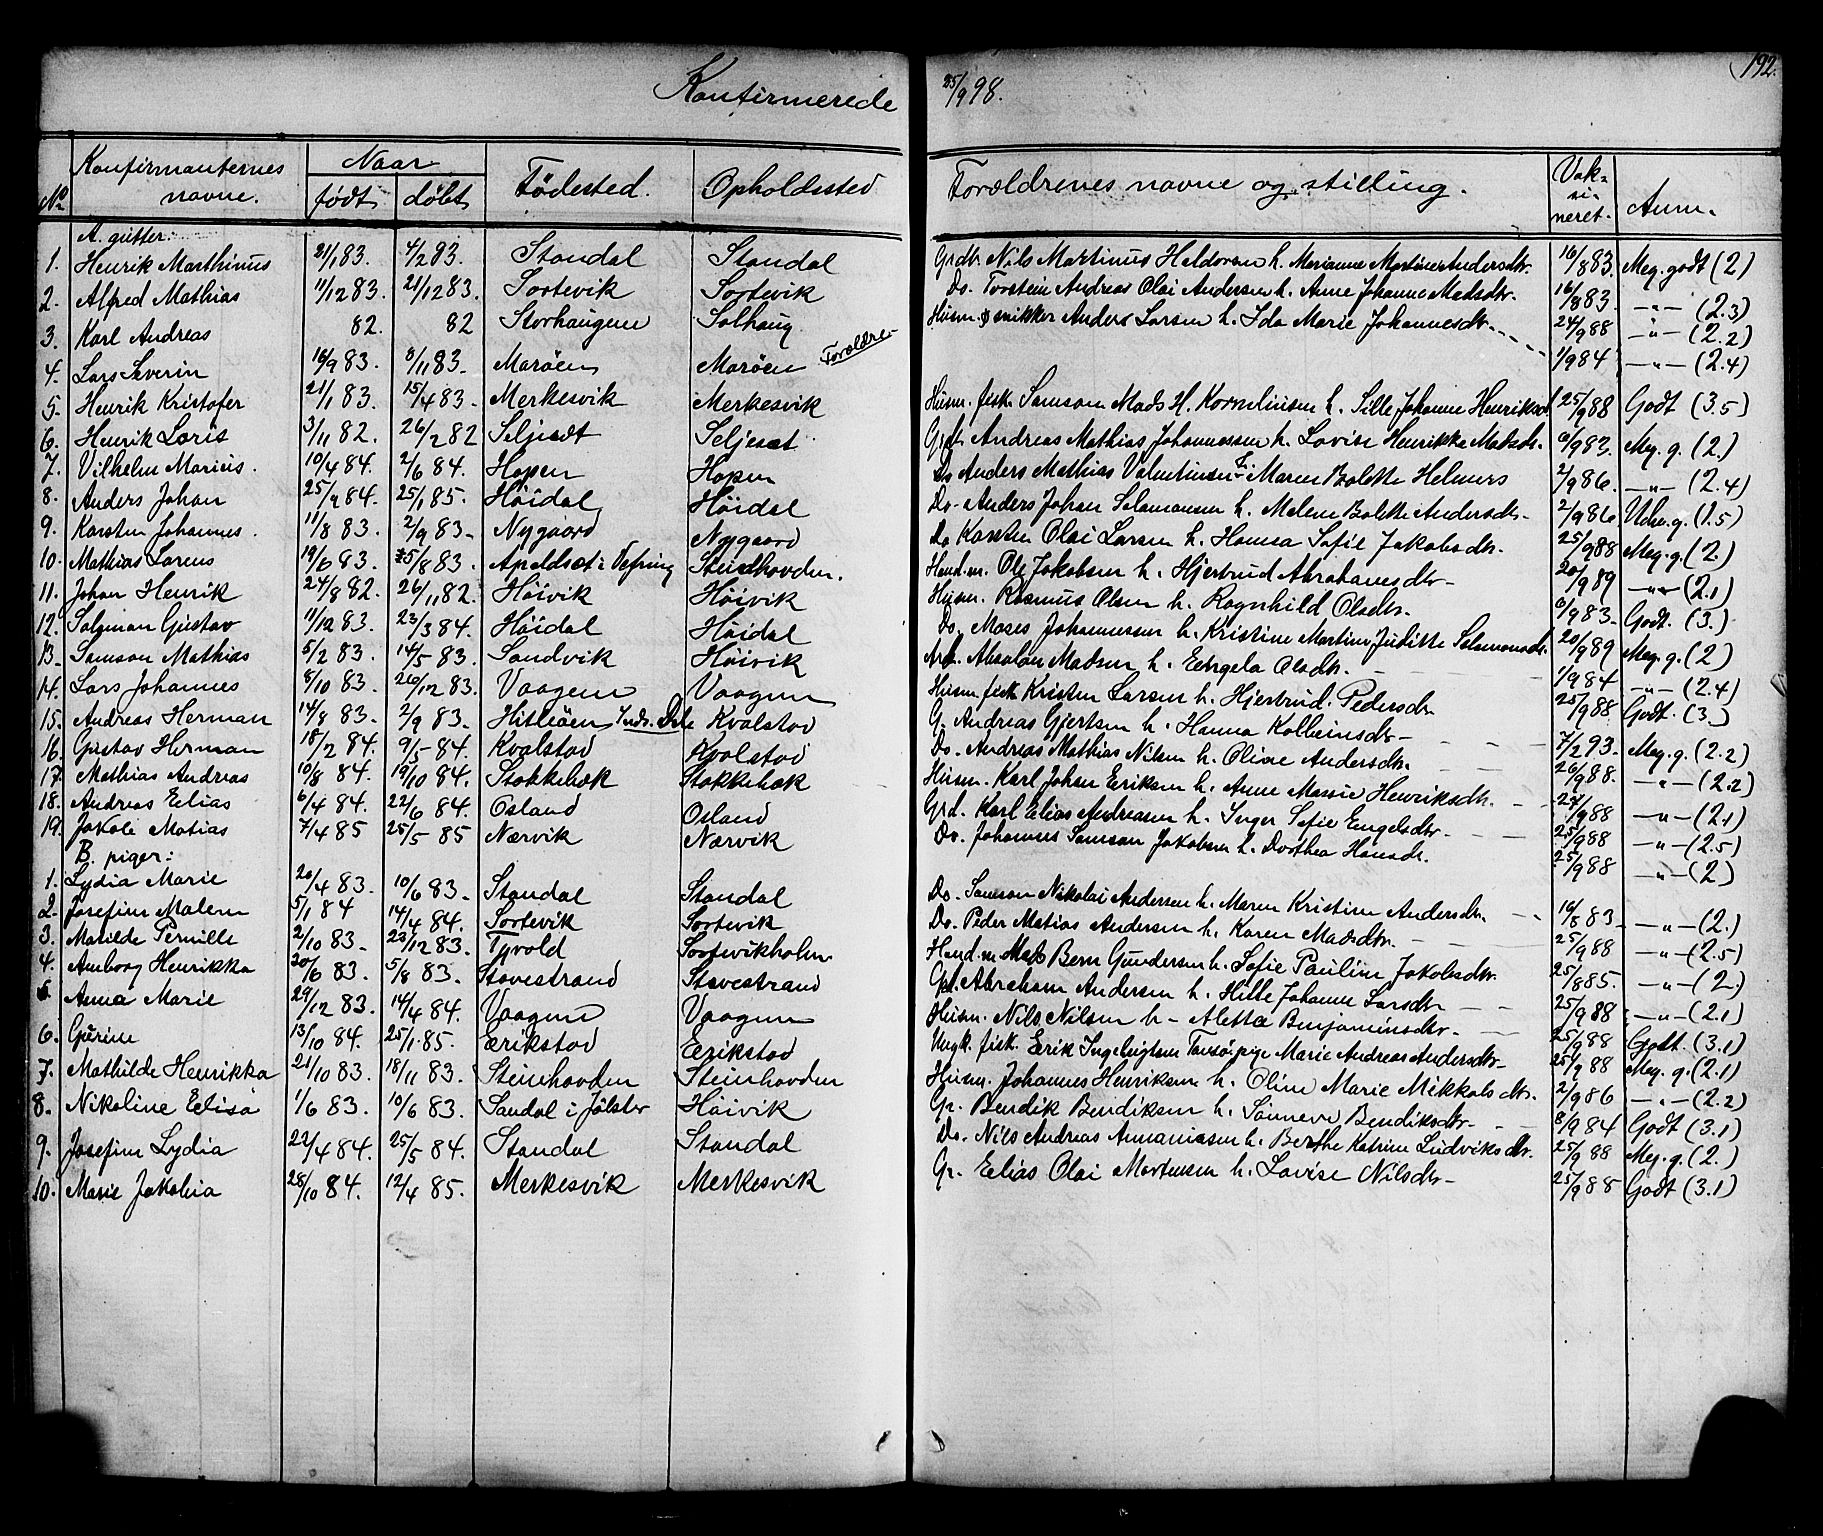 Konfirmerede 25/9 98. 192.
No Konfirmanternes navne. Naar født døbt Fødested. Opholdssted Forældrenes navne og stilling. Vaksineret. Anm.
A. gutter:
1. Henrik Marthinus 21/1 83. 4/2 83. Standal Standal Nils Martinus Heldorsen h. Merianne Andersdtr. 16/8 83. Meg. godt (2)
2. Alfred Mathias 11/12 83. 21/12 83. Sortevik Sortevik Do. Torstein Andreas Olai Andersen h. Anne Johanne Madsdtr. 16/8 83. —"— (2.3)
3. Karl Andreas 82. 82 Storhaugene Solhaug Husm. & snikker Anders Larsen h. Ida Marie Johannesdtr. 24/9 88 —"— (2.2)
4. Lars Severin 16/9 83. 8/11 83. Marøen Marøen Forældre 1/9 84 —"— (2.4)
5. Henrik Kristofer 21/1 83. 15/4 83. Merkesvik Merkesvik Husm. fisk. Samson Mads H. Korneliusen h. Sille Johanne Henriksd. 25/9 88 Godt (3.5)
6. Henrik Loris 3/11 82. 26/2 82 Seljesæt Seljesæt Andreas Mathias Johannessen h. Lovise Henrikke Matsdr. 6/9 83. Meg. g. (2.)
7. Vilhelm Marius. 10/4 84. 2/6 84. Hopen Hopen Do Anders Mathias Valentinsen Maren Bolette Helmers 2/9 86. —"— (2.4)
8. Anders Johan 25/9 84. 25/1 85. Höidal Höidal Do. Anders Johan Salamonsen h. Malene Bolette Andersdr. 2/9 86 Udm. g. (1.5)
9. Karsten Johannes. 11/8 83. 2/9 83. Nygaard Nygaard Do Karsten Olai Larsen h. Hanna Sofie Jakobsdtr. 25/9 88 Meg. g. (2.)
10. Mathias Lorens 19/6 83. 5/8 83. Apeldsæt i Vefring Steinhovden. Hand.m. Ole Jakobsen h. Hjertrud Abrahamsdtr. 20/9 89 —"— (2.1)
11. Johan Henrik 24/8 82. 26/11 82. Höivik Höivik Husm. Rasmus Olsen h. Ragnhild Olsdtr. 6/9 83. Godt. (3.)
12. Salamon Gustav 11/12 83. 23/3 84. Höidal Höidal Do. Moses Johannessen h. Kristine Martine Juditte Salamonsdr. 20/9 89 Meg. g. (2)
13. Samson Mathias 5/2 83. 14/5 83. Sandvik Höivik Arb. Absalon Madsen h. Engela Olsdtr. 1/9 84 —"— (2.4)
14. Lars Johannes 8/10 83. 26/12 83. Vaagene Vaagene Husm. fisk. Kristen Larsen h. Hjertrud Pedersdr. 25/9 88 Godt. (3.)
15. Andreas Herman 14/8 83. 2/9 83. Kvalstod G. Andreas Gjertsen h. Hanna Kolbeinsdr. 7/2 93. Meg. g. (2.2)
16. Gustav Herman 18/2 84. 9/5 84. Kvalstod Kvalstod Do. Andreas Mathias Nilsen h. Oline Andersdtr. 26/9 88. —"— (2.2)
17. Mathias Andreas 10/8 84. 19/10 84. Stokkebæk Stokkebæk Husm. Karl Johan Eriksen h. Anne Marie Henriksdtr. 24/9 88 —"— (2.1)
18. Andreas Elias 6/4 84. 22/6 84. Osland Osland Grd. Karl Elias Andreasen h. Inger Sofie Engelsdtr. 25/9 88 —"— (2.5)
19. Jakob Matias 7/4 85 25/5 85 Nærvik Nærvik Do. Johannes Samson Jakobsen h. Dorthea Hansdr. 25/9 88 —"— (2)
B. piger:
1. Lydia Marie 20/4 83. 10/6 83. Standal Standal Do. Samson Nikolai Andersen h. Maren Kristine Andersdr. 16/8 83 —"— (2.)
2. Josefine Malene 5/1 84 14/4 84. Sortevik Sortevik Do. Peder Matias Andersen h. Karen Madsdtr. 25/9 88 —"— (2.5)
3. Matilde Pernille 2/10 83. 23/12 83. Tyvold Sortevikholm Hand.m. Bern Gundersen h. Sofie Pauline Jakobsdtr. 25/8 85. —"— (2.)
4. Amborg Henrikka 20/6 83. 5/8 83. Stavestrand Stavestrand Abraham Andersen h. Hille Johanne Larsdtr. 25/9 88 —"— (2.1)
5. Anna Marie 29/12 83. 14/4 84. Vaagene Vaagene Husm. Nils Nilsen h. Aletta Benjaminsdtr. 25/9 88 Godt. (3.1)
6. Gurine 13/10 84. 25/1 85. Erikstod Erikstod Ungk. fisk. Erik Ingebrigtsen Tansø, pige Marie Andreas Andersdtr. 25/9 88 Meg. g. (2.1)
7. Mathilde Henrikka 21/10 83. 18/11 83. Steinhovden Steinhovden Husm. Johannes Henriksen h. Oline Marie Mikkalsdtr. 2/9 86 —"— (2.2)
8. Nikoline Elisa 1/6 83. 10/6 83. Sandal i Jölster Höivik Gr. Bendik Bendiksen h. Sönneve Bendiksdtr. 8/9 84 Godt (3.1)
9. Josefine Lydia 22/4 84. 25/5 84. Standal Standal Do. Nils Andreas Ananiassen h. Berthe Katrine Ludviksdtr. 25/9 88 Meg. g. (2.)
10. Marie Jakobia 28/10 84. 12/4 85. Merkesvik Merkesvik Gr. Elias Olai Mortensen h. Lovise Nilsdtr. 25/9 88 Godt (3.1)